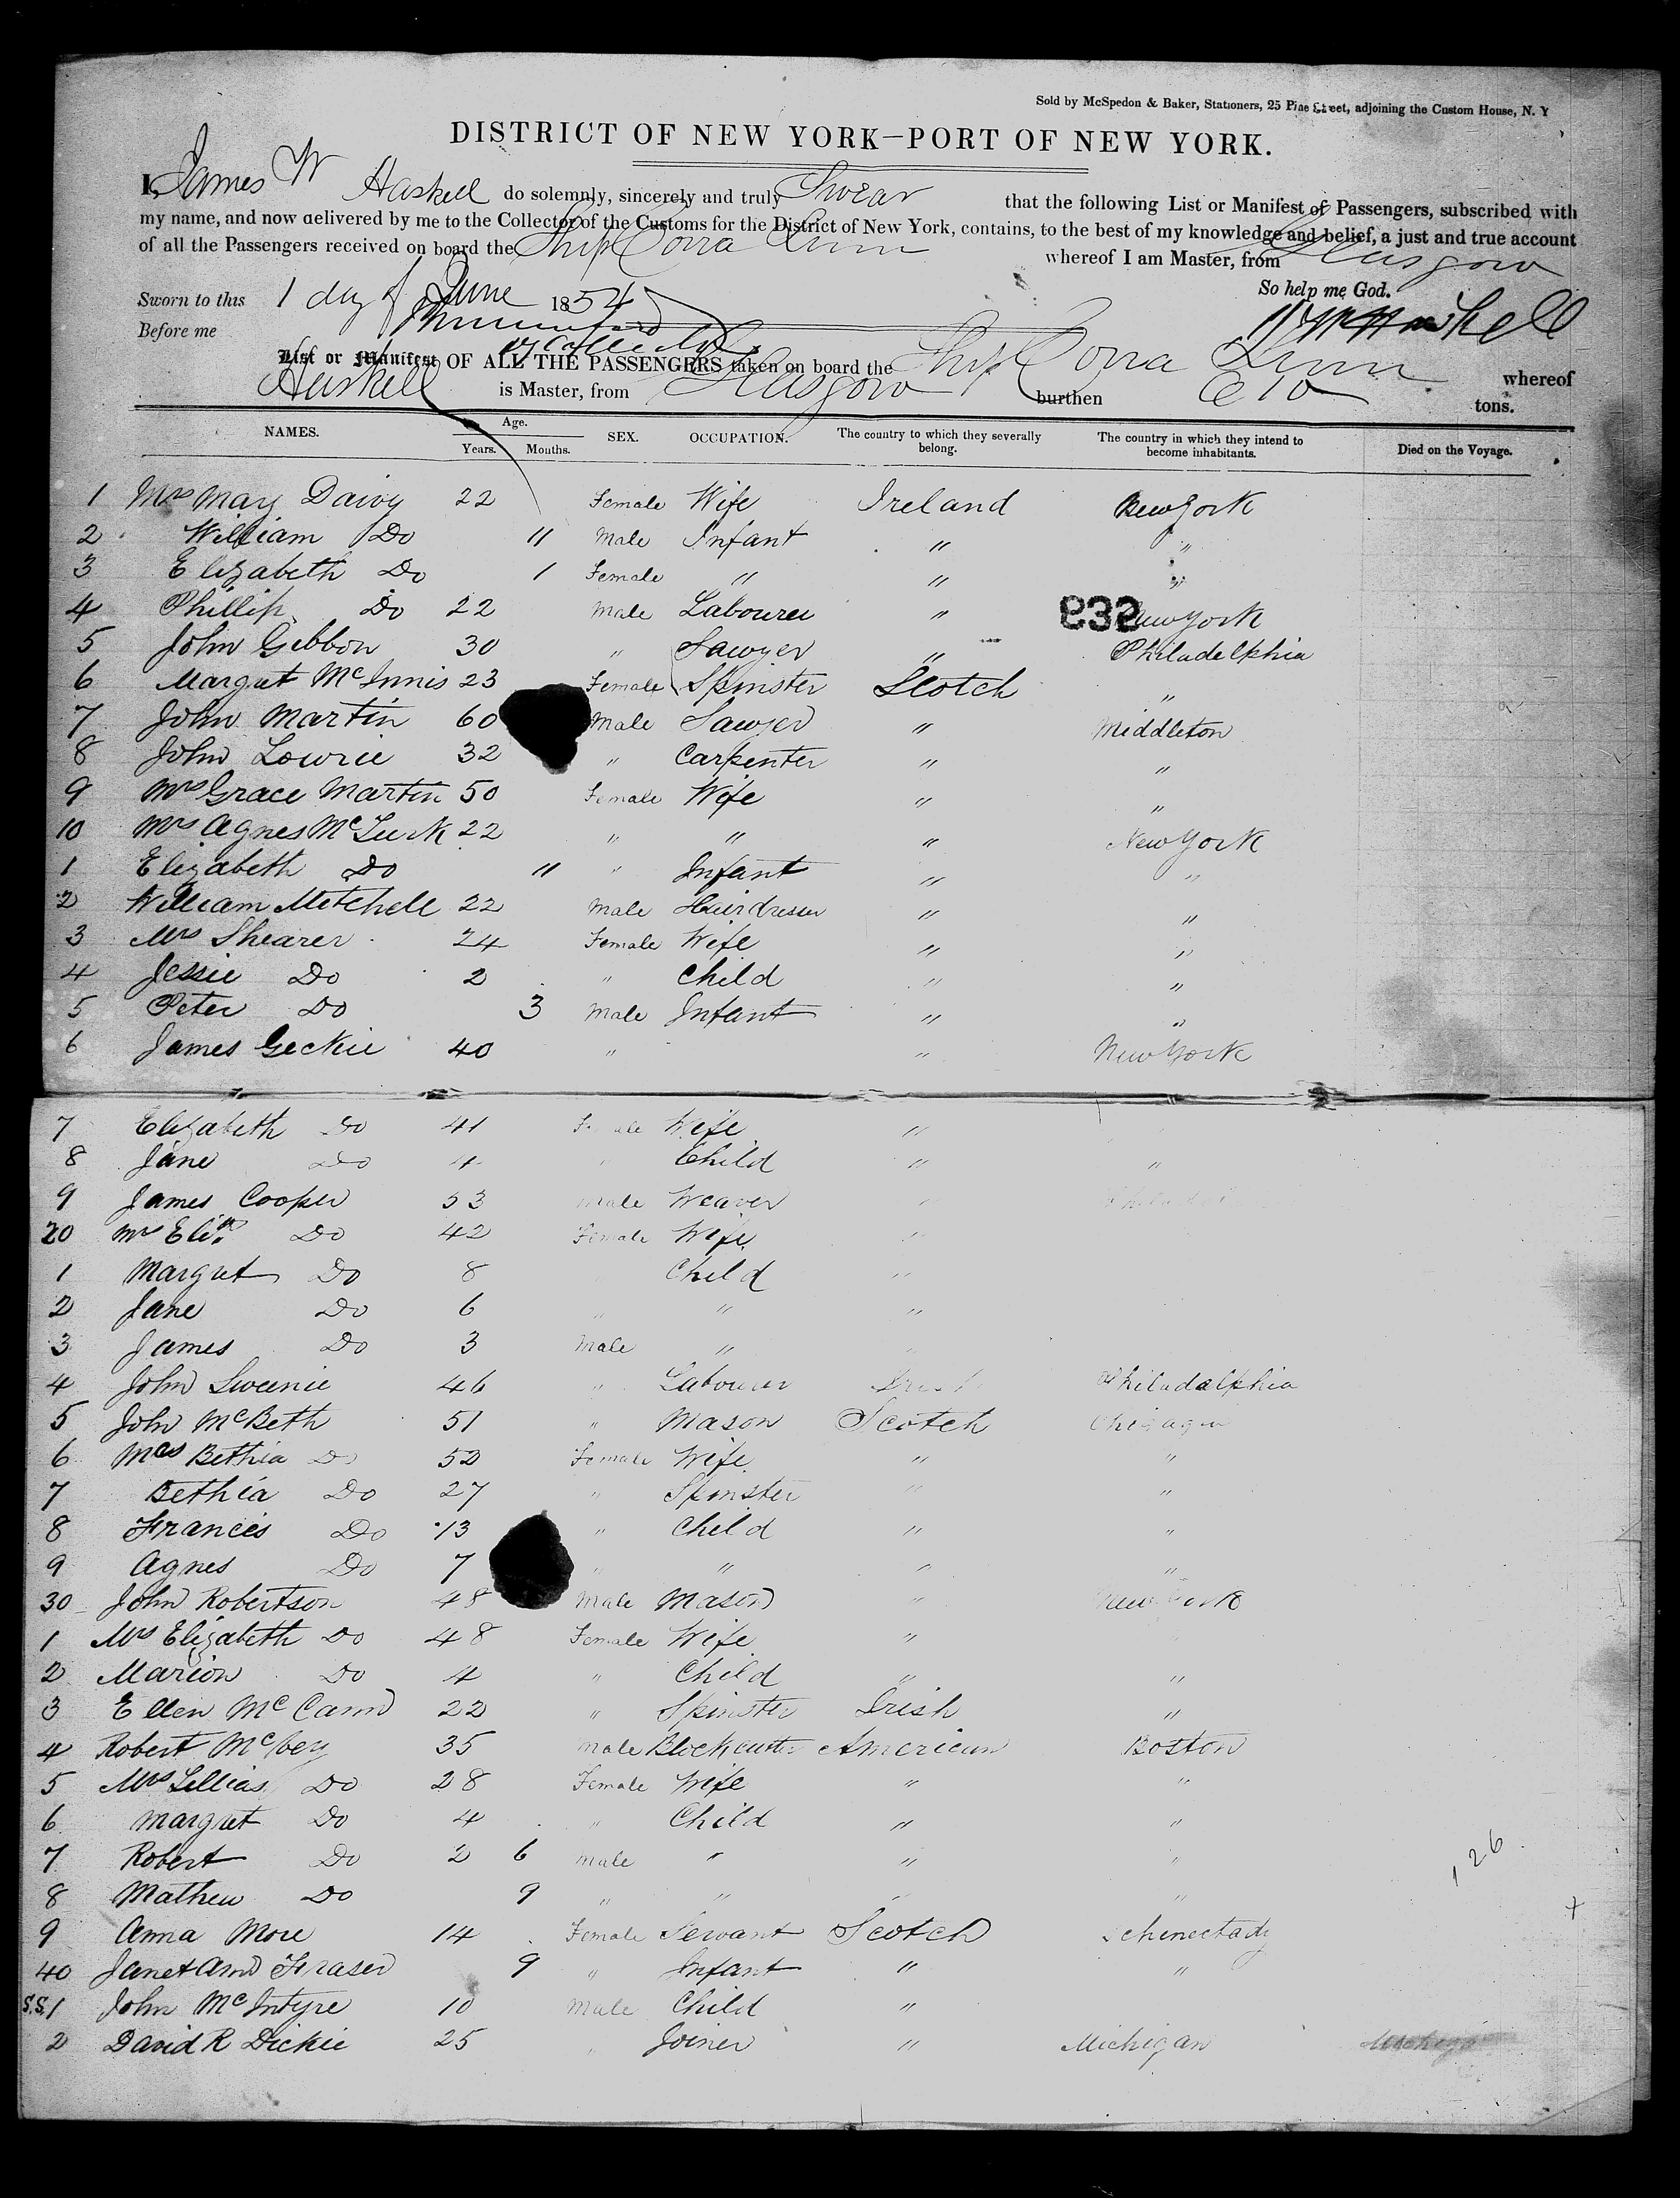 Sold by McSpedon & Baker, Stationers, 25 Pine Street, adjoining the Custom House, N. Y
DISTRICT OF NEW YORK—PORT OF NEW YORK.
I, James W Haskell do solemnly, sincerely and truly Swear that the following List or Manifest of Passengers, subscribed with
my name, and now delivered by me to the Collector of the Customs for the District of New York, contains, to the best of my knowledge and belief, a just and true account
of all the Passengers received on board the Ship Corra Linn whereof I am Master, from Glasgow
So help me God.
Sworn to this 1 day of June 1854
Before me
J W Haskell
List or Manifest OF ALL THE PASSENGERS taken on board the Ship Corra Linn whereof
Haskell is Master, from Glasgow burthen 610 tons.
NAMES. Age. Years. Months. SEX. OCCUPATION. The country to which they severally belong. The country in which they intend to become inhabitants. Died on the Voyage.
1 Mrs Mary 22 Female Wife Ireland New York
2 William Do 11 Male Infant " "
3 Elizabeth Do 1 Female " " "
4 Phillip Do 22 Male Labourer " New York
5 John Gibbon 30 " Sawyer " Philadelphia
6 Margret McInnis 23 Female Spinster Scotch "
7 John Martin 60 Male Sawyer " Middleton
8 John Lowrie 32 " Carpenter " "
9 Mrs Grace Martin 50 Female Wife " "
10 Mrs Agnes McTurk 22 " " " New York
1 Elizabeth Do 11 " Infant " "
2 William Mitchell 22 Male Hairdresser " "
3 Mrs Shearer 24 Female Wife " "
4 Jessie Do 2 " Child " "
5 Peter Do 3 Male Infant " "
6 James Geckie 40 " " New York
7 Elizabeth Do 41 Female Wife "
8 Jane Do 4 " Child " "
9 James Cooper 53 Male Weaver "
20 Mrs Elizth Do 42 Female Wife "
1 Margret Do 8 Child "
2 Jane Do 6 " " "
3 James Do 3 Male "
4 John Sweenie 46 " Labourer Irish Philadelphia
5 John McBeth 51 " Mason Scotch Chicago
6 Mrs Bethia Do 52 Female Wife " "
7 Bethia Do 27 " Spinster " "
8 Francis Do 13 " Child " "
9 Agnes Do 7 " " " "
30 John Robertson 48 Male Mason " New York
1 Mrs Elizabeth Do 48 Female Wife "
2 Marion Do 4 " Child " "
3 Ellen McCann 22 " Spinster Irish "
4 Robert 35 Male Blockcutter American Boston
5 Mrs Lillias Do 28 Female Wife " "
6 Margret Do 4 " Child " "
7 Robert Do 2 6 Male " " "
8 Mathew Do 9 " " " "
9 Anna More 14 Female Servant Scotch Schenectady
40 Janet Ann Fraser 9 " Infant " "
S.S. 1 John McIntyre 10 Male Child "
2 David R Dickie 25 " Joiner " Michigan
126